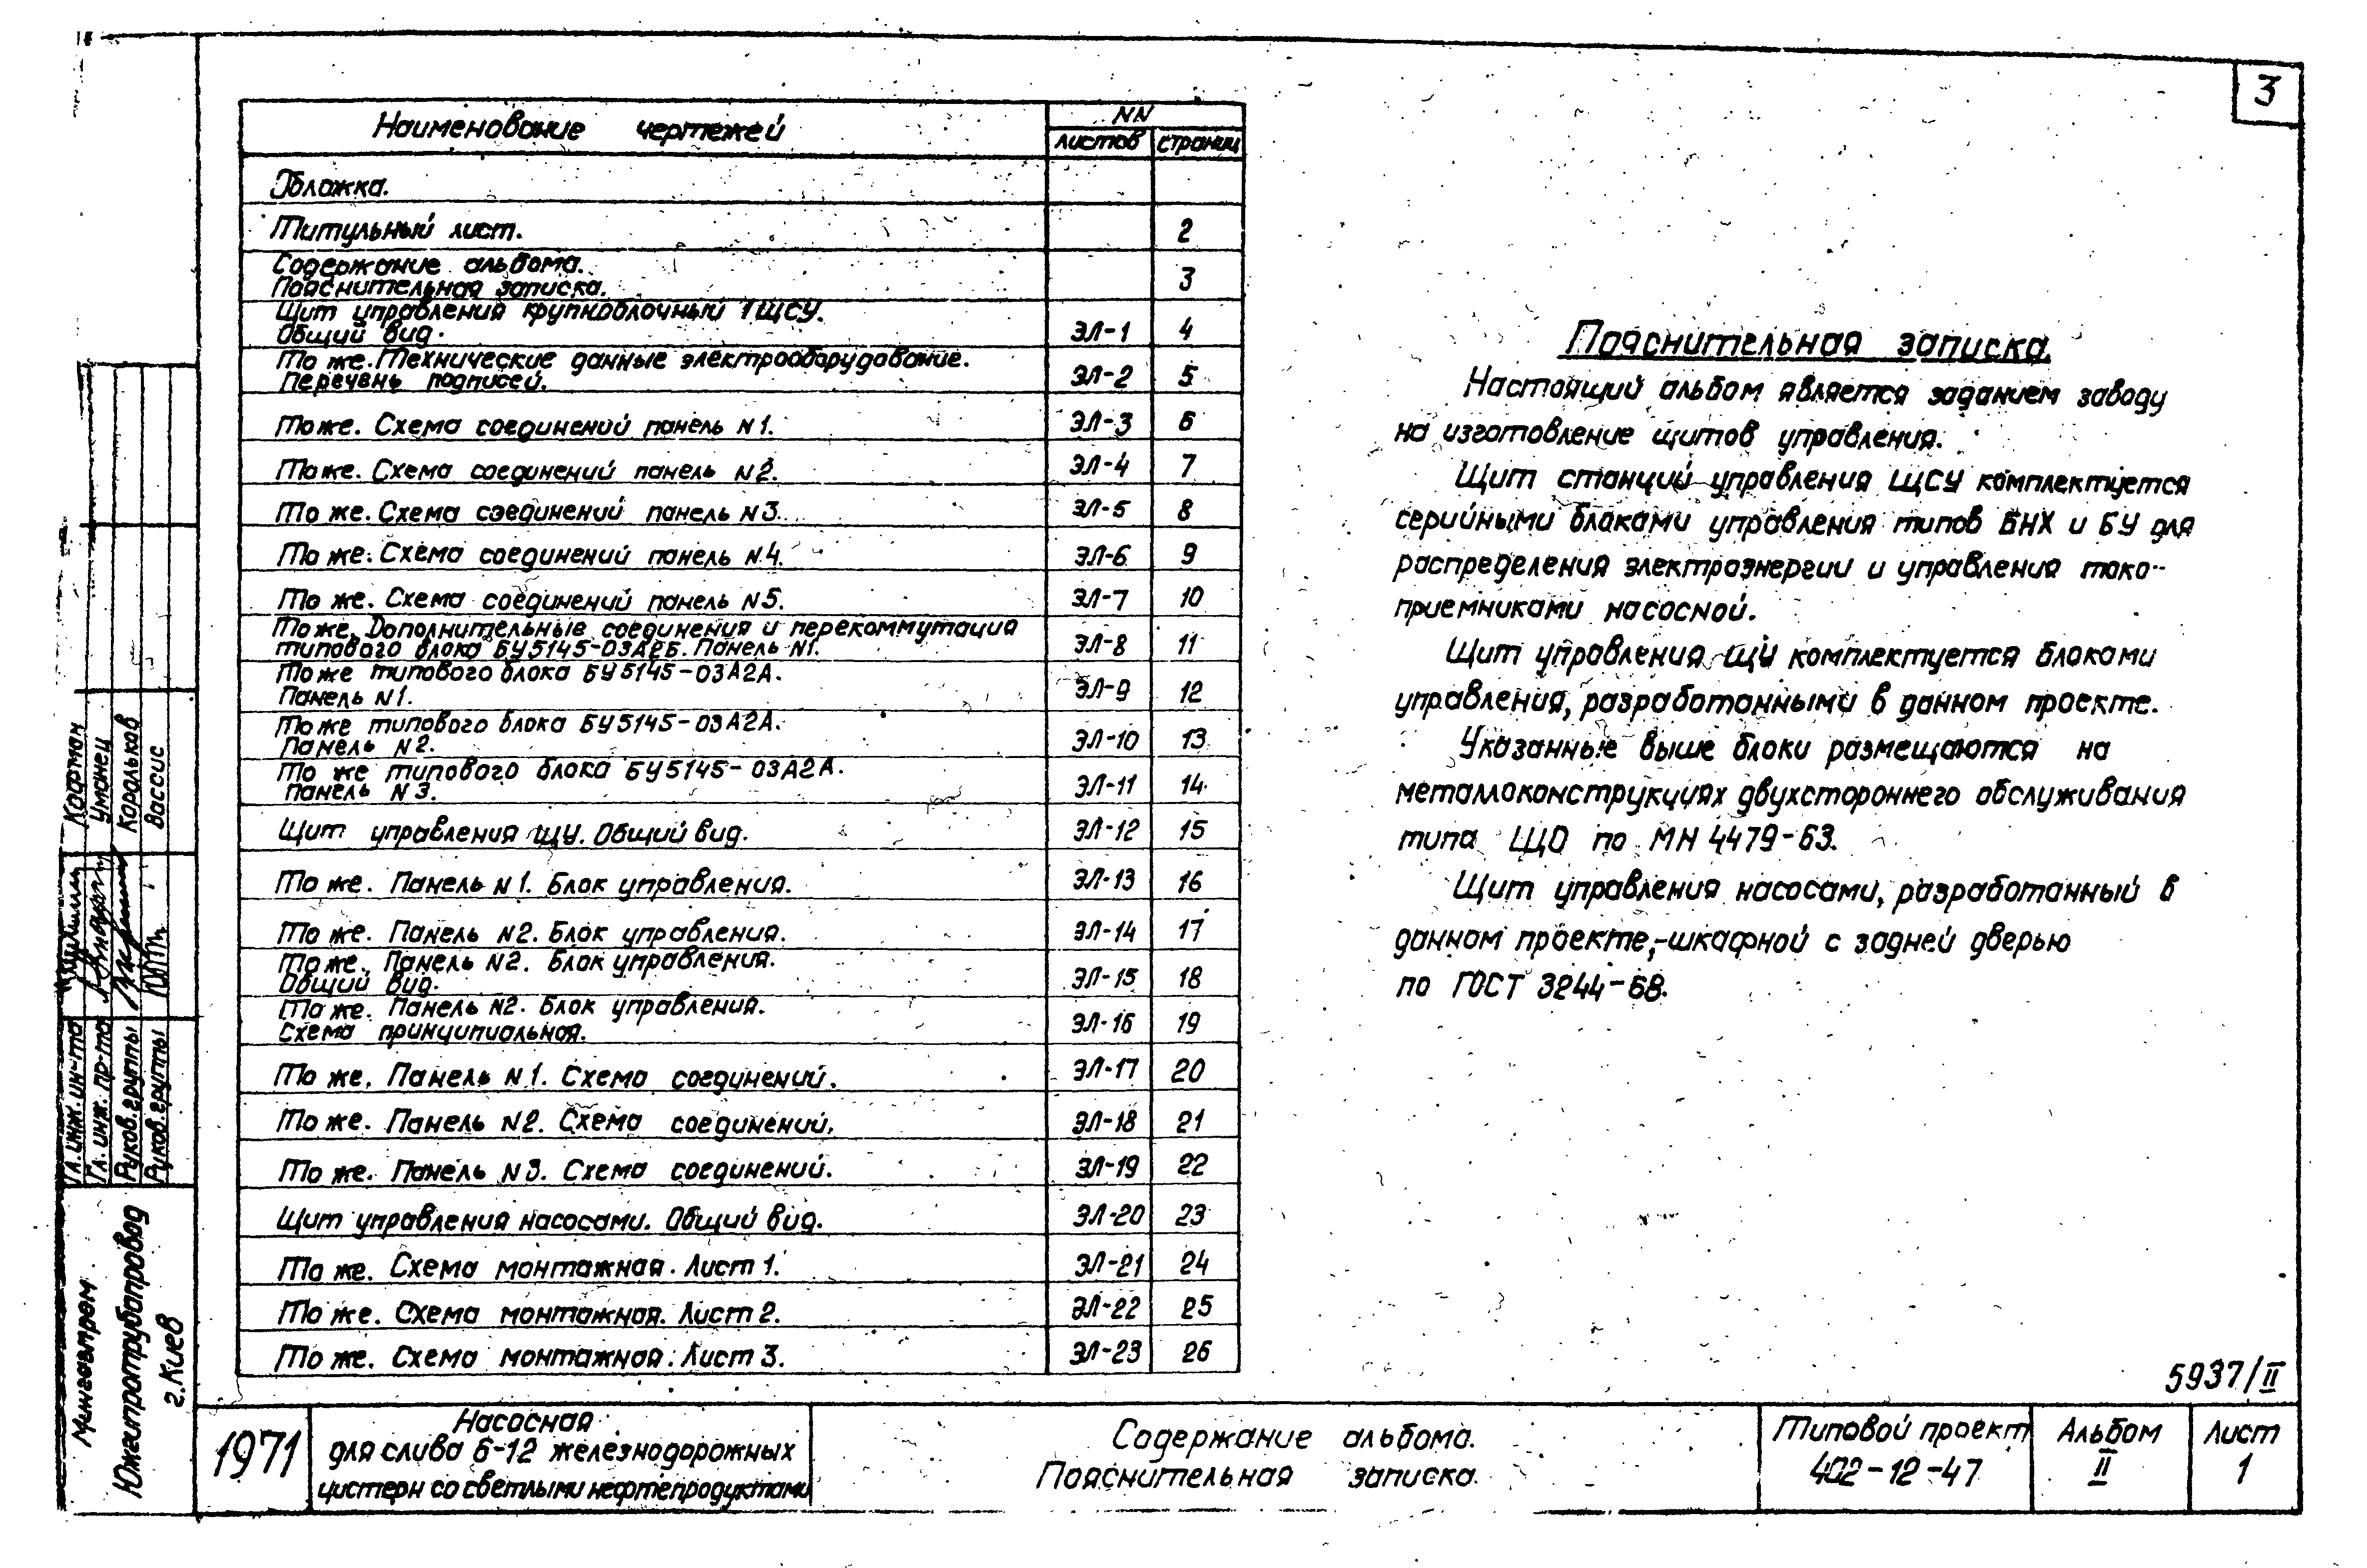 3
Наименование чертежей
NN
листов страниц
Обложка.
Титульный лист. 2
Содержание альбома.
Пояснительная записка. 3
Щит управления крупноблочный 1ЩСУ.
Общий вид. ЭЛ-1 4
То же. Технические данные электрооборудование.
Перечень подписей. ЭЛ-2 5
То же. Схема соединений панель N1. ЭЛ-3 6
То же. Схема соединений панель N2. ЭЛ-4 7
То же. Схема соединений панель N3. ЭЛ-5 8
То же. Схема соединений панель N4. ЭЛ-6 9
То же. Схема соединений панель N5. ЭЛ-7 10
То же. Дополнительные соединения и перекоммутация
типового блока БУ5145-03А2Б. Панель N1. ЭЛ-8 11
То же типового блока БУ5145-03А2А.
Панель N1. ЭЛ-9 12
То же типового блока БУ5145-03А2А.
Панель N2. ЭЛ-10 13
То же типового блока БУ5145-03А2А.
панель N3. ЭЛ-11 14
Щит управления ЩУ. Общий вид. ЭЛ-12 15
То же. Панель N1. Блок управления. ЭЛ-13 16
То же. Панель N2. Блок управления. ЭЛ-14 17
То же. Панель N2. Блок управления.
Общий вид. ЭЛ-15 18
То же. Панель N2. Блок управления.
Схема принципиальная. ЭЛ-16 19
То же. Панель N1. Схема соединений. ЭЛ-17 20
То же. Панель N2. Схема соединений. ЭЛ-18 21
То же. Панель N3. Схема соединений. ЭЛ-19 22
Щит управления насосами. Общий вид. ЭЛ-20 23
То же. Схема монтажная. Лист 1. ЭЛ-21 24
То же. Схема монтажная. Лист 2. ЭЛ-22 25
То же. Схема монтажная. Лист 3. ЭЛ-23 26
Пояснительная записка.
Настоящий альбом является заданием заводу
на изготовление щитов управления.
Щит станций управления ЩСУ комплектуется
серийными блоками управления типов БНХ и БУ для
распределения электроэнергии и управления токо-
приемниками насосной.
Щит управления ЩУ комплектуется блоками
управления, разработанными в данном проекте.
Указанные выше блоки размещаются на
металлоконструкциях двухстороннего обслуживания
типа ЩО по МН 4479-63.
Щит управления насосами, разработанный в
данном проекте,-шкафной с задней дверью
по ГОСТ 3244-68.
5937/II
Гл. инж. ин-та Кофман
Гл. инж. пр-та Уманец
Руков. группы Корольков
Руков. группы Вассис
Мингазпром
Южгипротрубопровод
г. Киев
1971
Насосная
для слива 6-12 железнодорожных
цистерн со светлыми нефтепродуктами
Содержание альбома.
Пояснительная записка.
Типовой проект
402-12-47
Альбом
II
Лист
1